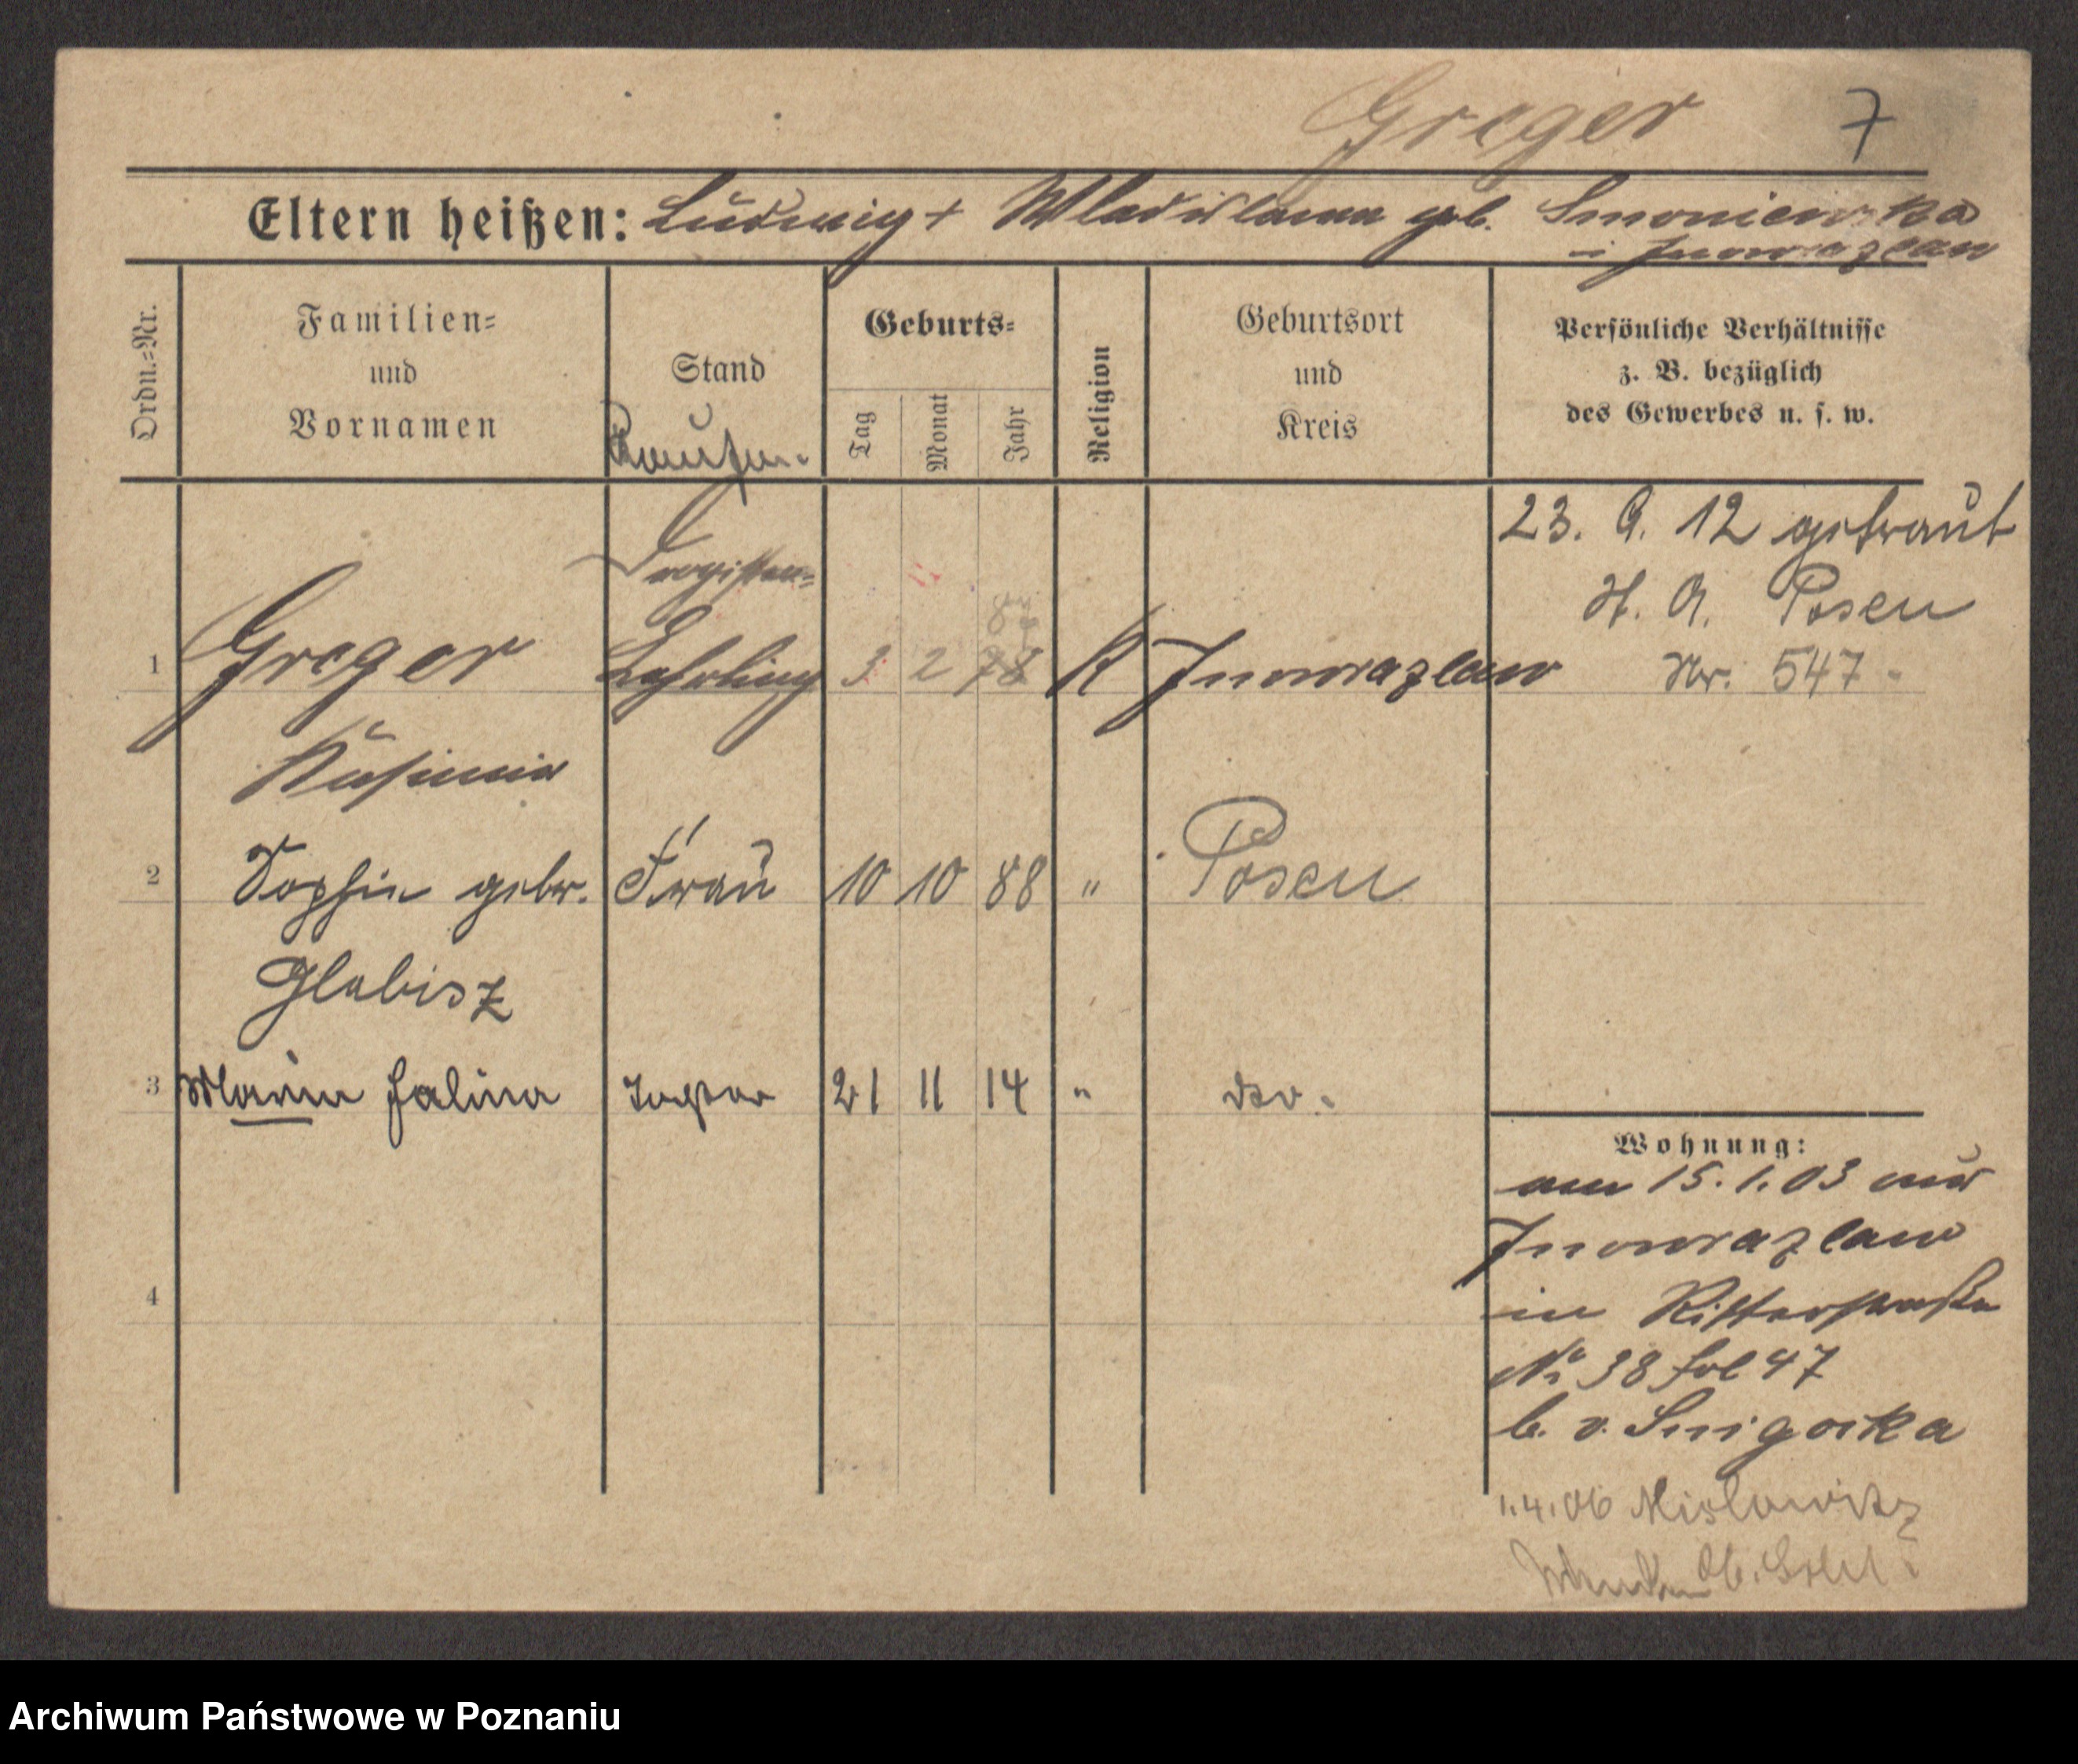 Greger 7
Eltern heißen: Ludwig + Wladislawa geb. Smoniewska
i Inowrazlaw
Ordn.-Nr.
Familien-
und
Vornamen
Stand
Kaufm.
Geburts-
Tag
Monat
Jahr
Religion
Geburtsort
und
Kreis
Persönliche Verhältnisse
z. B. bezüglich
des Gewerbes u. s. w.
23. 9. 12 getraut
St. A. Posen
Nr. 547.
Drogisten-
1 Greger Lehrling 3 2 K Inowrazlaw
Kasimir
2 Sophie gebr. Frau 10 10 88 " Posen
Glabisz
3 Maria Halina Tochter 21 11 14 " dto.
4
Wohnung:
am 15.1.03 aus
Inowrazlaw
in Ritterstraße
No 38 fol 47
b. v. Snigorka
1.4.06 Mislowitz
Archiwum Państwowe w Poznaniu